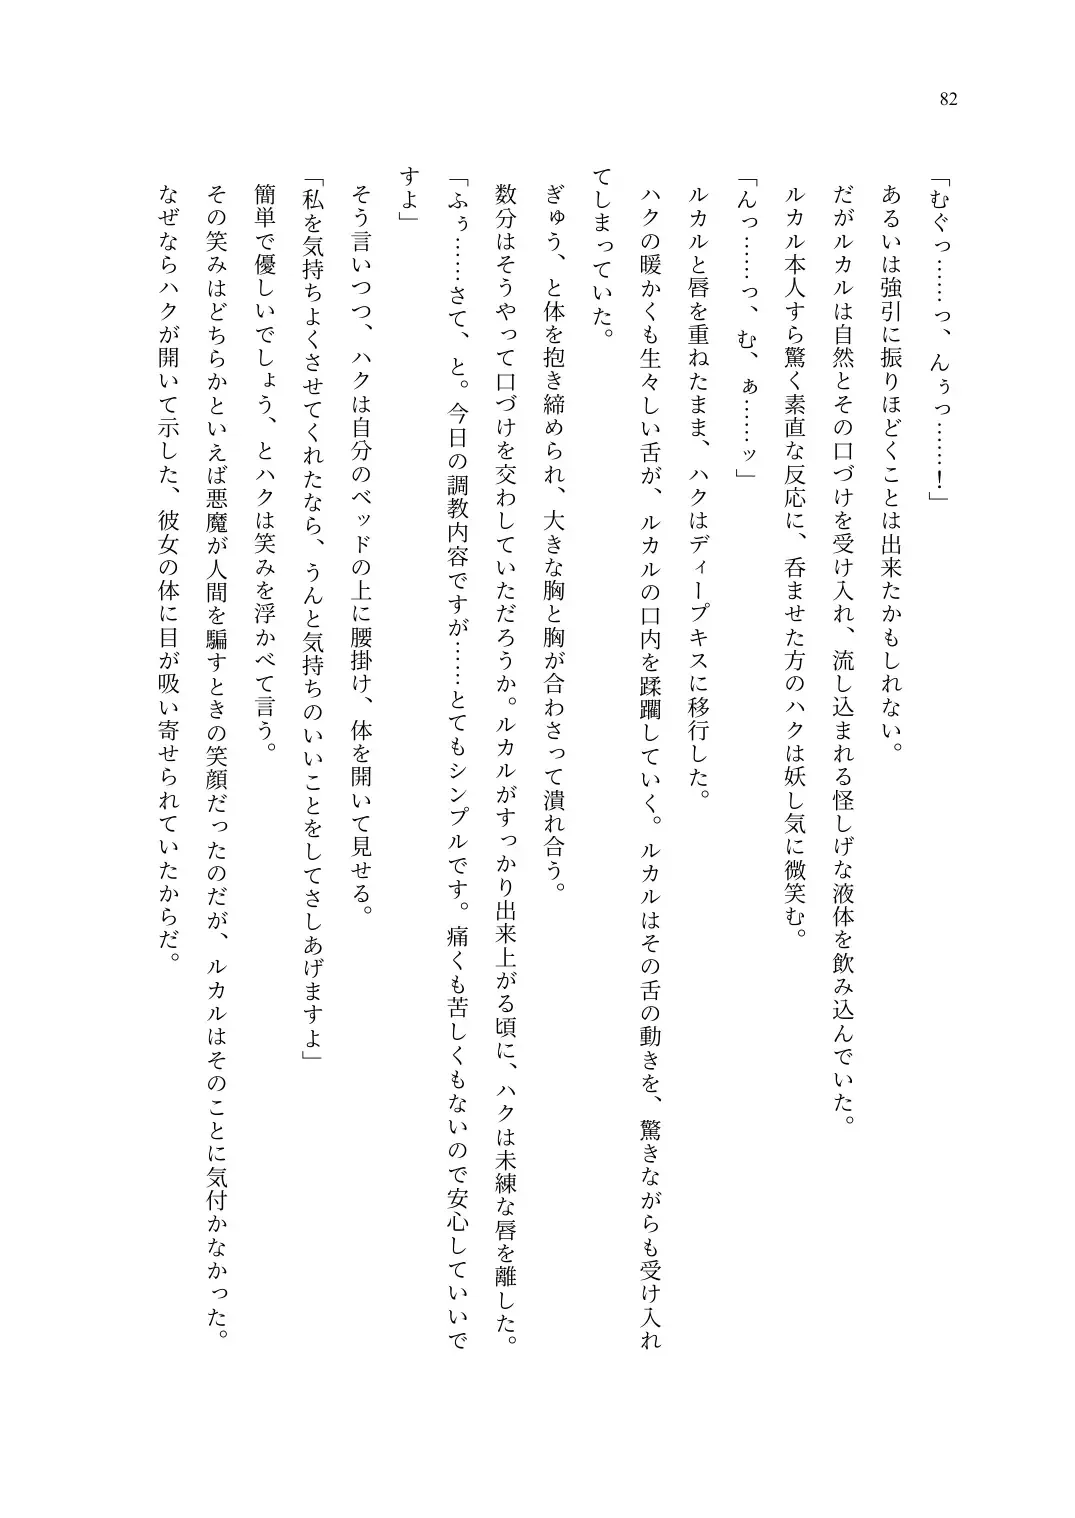 82
「むぐっ……っ、んぅっ……！」
あるいは強引に振りほどくことは出来たかもしれない。
だがルカルは自然とその口づけを受け入れ、流し込まれる怪しげな液体を飲み込んでいた。
ルカル本人すら驚く素直な反応に、呑ませた方のハクは妖し気に微笑む。
「んっ……っ、む、ぁ……ッ」
ルカルと唇を重ねたまま、ハクはディープキスに移行した。
ハクの暖かくも生々しい舌が、ルカルの口内を蹂躙していく。ルカルはその舌の動きを、驚きながらも受け入れ
てしまっていた。
ぎゅう、と体を抱き締められ、大きな胸と胸が合わさって潰れ合う。
数分はそうやって口づけを交わしていただろうか。ルカルがすっかり出来上がる頃に、ハクは未練な唇を離した。
「ふぅ……さて、と。今日の調教内容ですが……とてもシンプルです。痛くも苦しくもないので安心していいで
すよ」
そう言いつつ、ハクは自分のベッドの上に腰掛け、体を開いて見せる。
「私を気持ちよくさせてくれたなら、うんと気持ちのいいことをしてさしあげますよ」
簡単で優しいでしょう、とハクは笑みを浮かべて言う。
その笑みはどちらかといえば悪魔が人間を騙すときの笑顔だったのだが、ルカルはそのことに気付かなかった。
なぜならハクが開いて示した、彼女の体に目が吸い寄せられていたからだ。